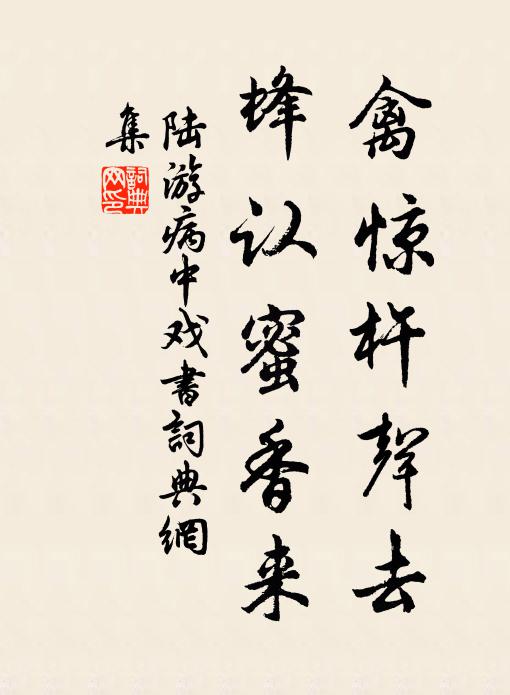 禽惊杵聲去
蜂认蜜香来
陆游病中戏書詞典網
集
詞典网印